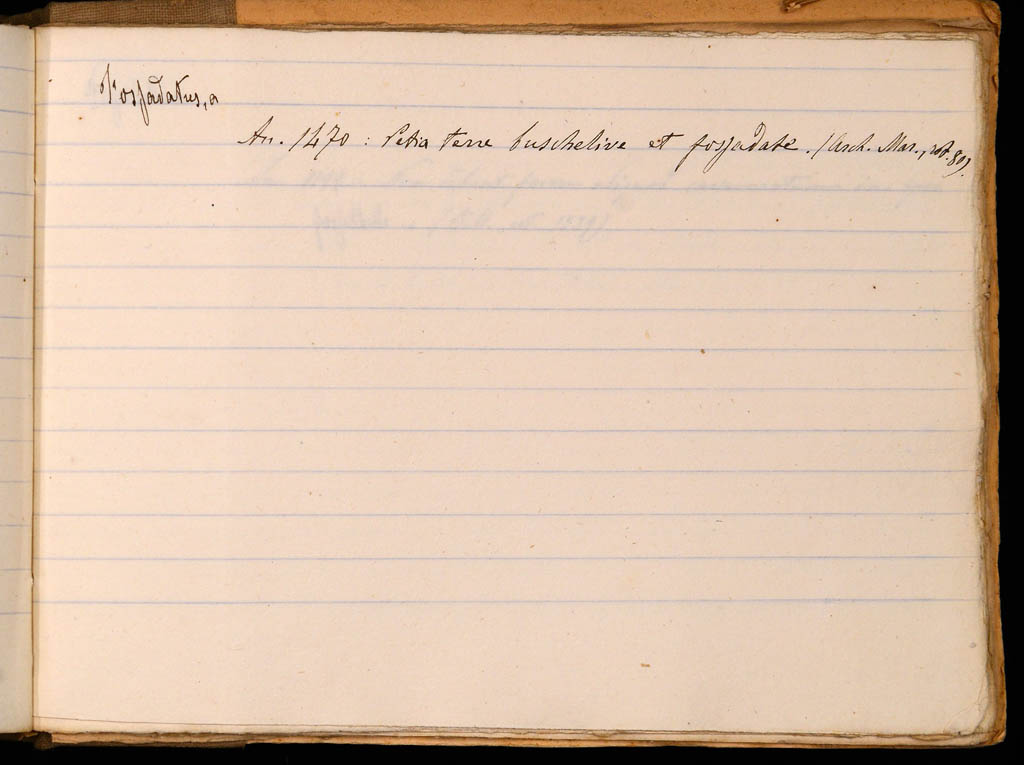 Fossadatus, a
An. 1470 : Petia terre buschelive et fossadate. (Arch. Mar., rot. 80).